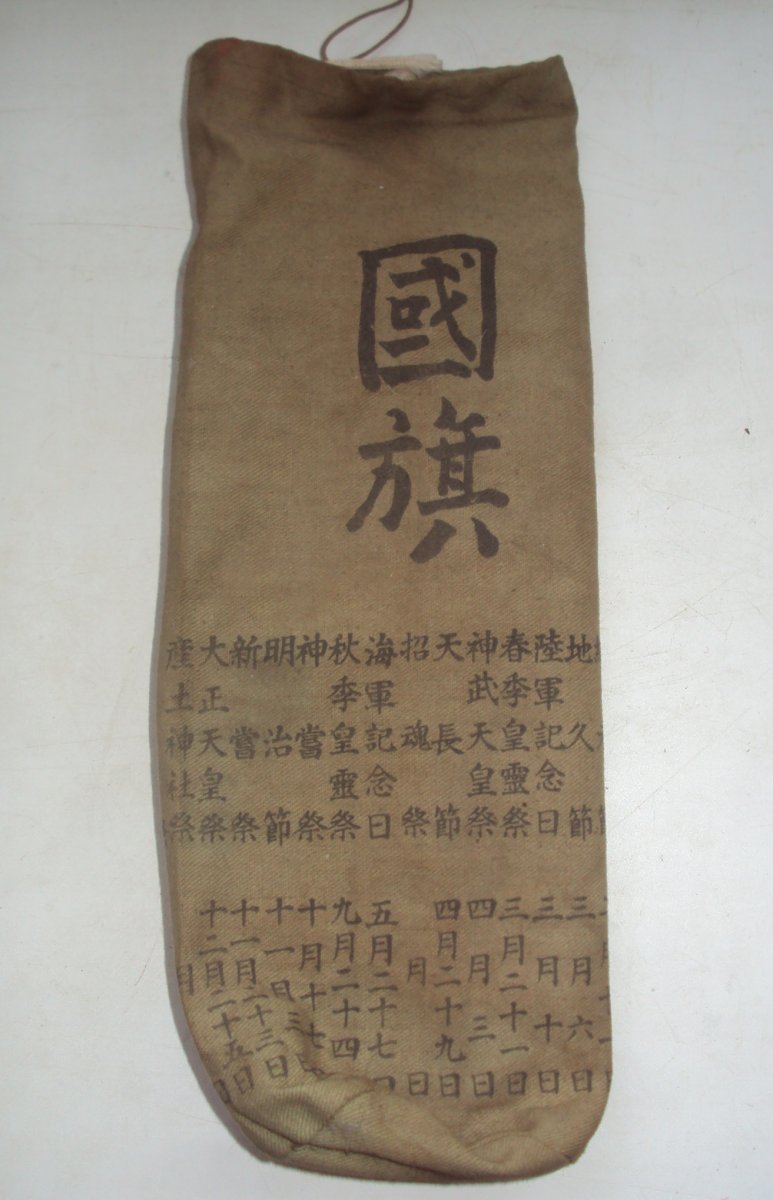 國旗
地久節 三月六日
陸軍記念日 三月十日
春季皇靈祭 三月二十一日
神武天皇祭 四月三日
天長節 四月二十九日
招魂祭 月 日
海軍記念日 五月二十七日
秋季皇靈祭 九月二十四日
神嘗祭 十月十七日
明治節 十一月三日
新嘗祭 十一月二十三日
大正天皇祭 十二月二十五日
産土神社祭 月 日